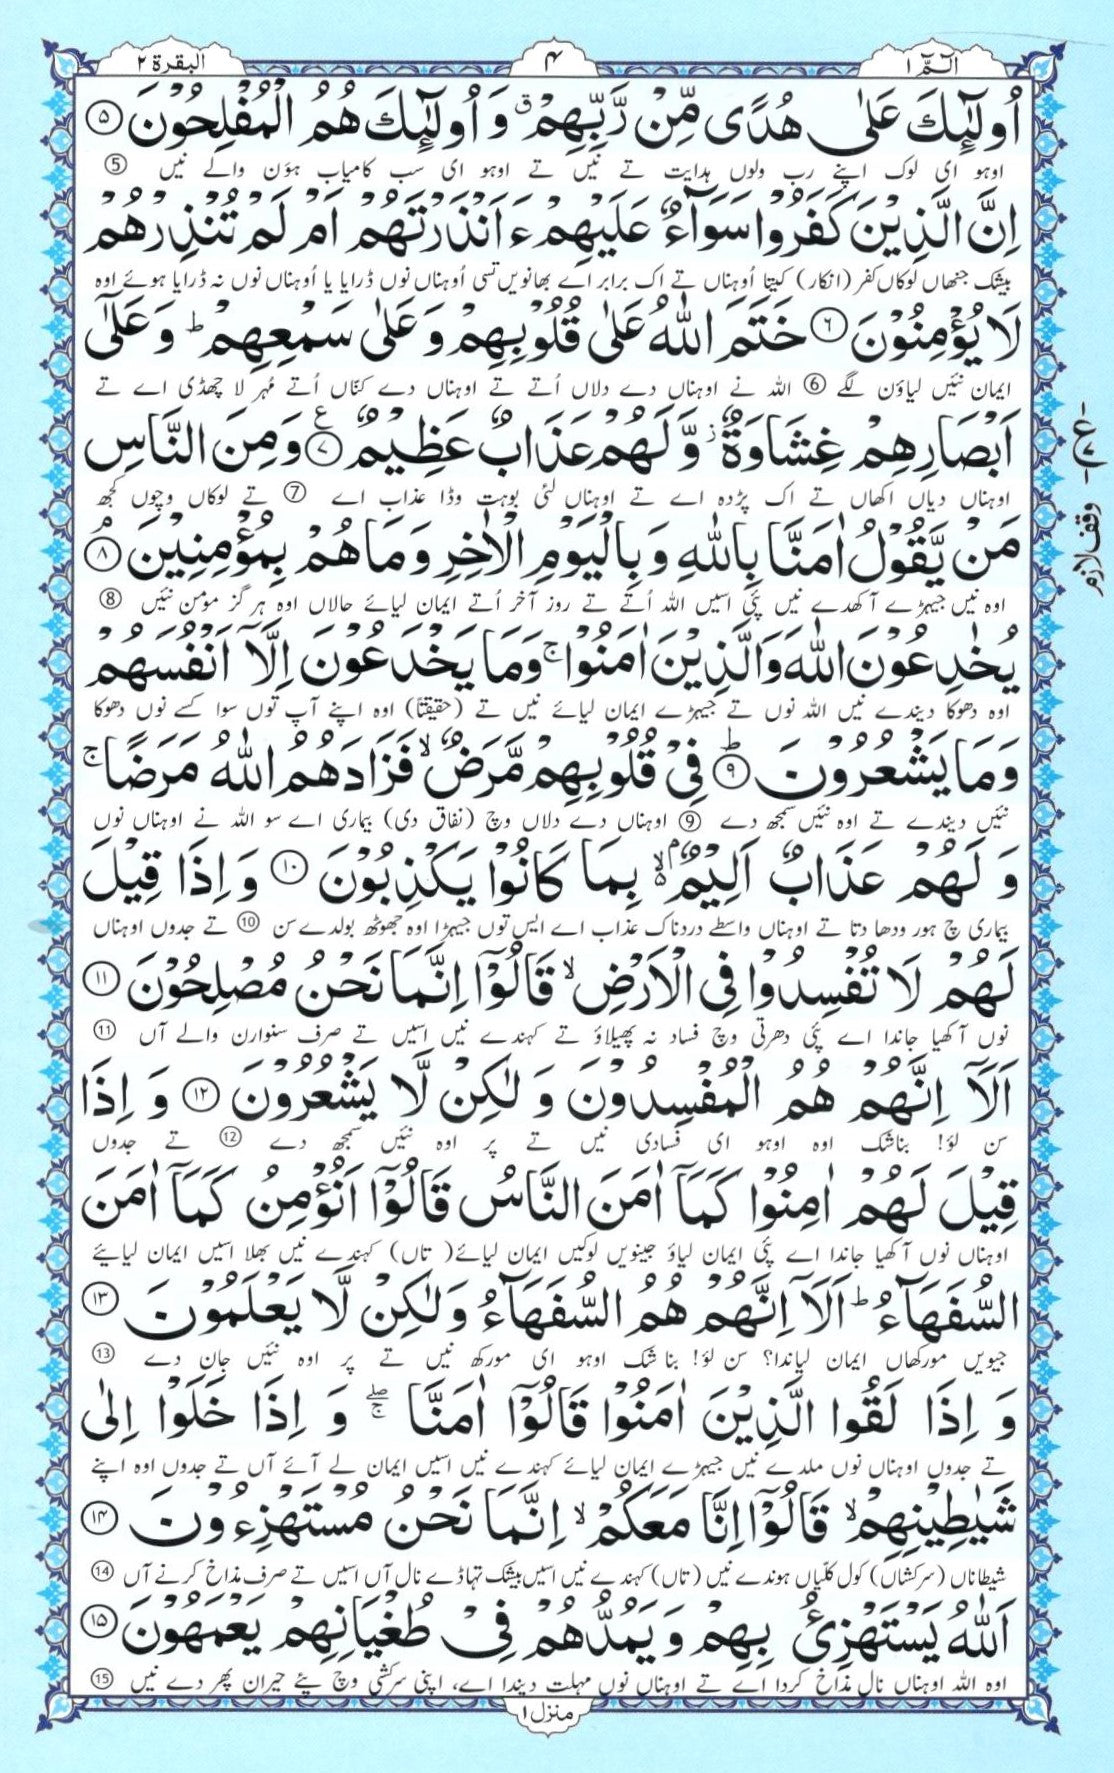 الٓمّٓ ۱
۴
البقرة ۲
اُولٰٓئِكَ عَلٰى هُدًى مِّنْ رَّبِّهِمْ ۗ وَ اُولٰٓئِكَ هُمُ الْمُفْلِحُوْنَ ۝۵
اوہو ای لوک اپنے رب ولوں ہدایت تے نیں تے اوہو ای سب کامیاب ہوَن والے نیں ⑤
اِنَّ الَّذِيْنَ كَفَرُوْا سَوَآءٌ عَلَيْهِمْ ءَاَنْذَرْتَهُمْ اَمْ لَمْ تُنْذِرْهُمْ
بیشک جنھاں لوکاں کفر (انکار) کیتا اُوہناں تے اک برابر اے بھانویں تسی اُوہناں نوں ڈرایا یا اُوہناں نوں نہ ڈرایا ہوئے اوہ
لَا يُؤْمِنُوْنَ ۝۶ خَتَمَ اللّٰهُ عَلٰى قُلُوْبِهِمْ وَعَلٰى سَمْعِهِمْ ؕ وَعَلٰٓى
ایمان نئیں لیاؤن لگے ⑥ اللہ نے اوہناں دے دلاں اُتے تے اوہناں دے کنّاں اُتے مُہر لا چھڈی اے تے
اَبْصَارِهِمْ غِشَاوَةٌ ؗ وَّلَهُمْ عَذَابٌ عَظِيْمٌ ۝۷ ع وَمِنَ النَّاسِ
اوہناں دیاں اکھاں تے اک پڑدہ اے تے اوہناں لئی بوہت وڈا عذاب اے ⑦ تے لوکاں وچوں کجھ
مَنْ يَّقُوْلُ اٰمَنَّا بِاللّٰهِ وَبِالْيَوْمِ الْاٰخِرِ وَمَا هُمْ بِمُؤْمِنِيْنَ ۝۸ۘ
وقف لازم
اوہ نیں جیہڑے آکھدے نیں پئی اسیں اللہ اُتے تے روز آخر اُتے ایمان لیائے حالاں اوہ ہرگز مومن نئیں ⑧
يُخٰدِعُوْنَ اللّٰهَ وَالَّذِيْنَ اٰمَنُوْا ۚ وَمَا يَخْدَعُوْنَ اِلَّاۤ اَنْفُسَهُمْ
اوہ دھوکا دیندے نیں اللہ نوں تے جیہڑے ایمان لیائے نیں تے (حقیقتًا) اوہ اپنے آپ توں سوا کسے نوں دھوکا
وَمَا يَشْعُرُوْنَ ۝۹ؕ فِيْ قُلُوْبِهِمْ مَّرَضٌ ۙ فَزَادَهُمُ اللّٰهُ مَرَضًا ۚ
نئیں دیندے تے اوہ نئیں سمجھ دے ⑨ اوہناں دے دلاں وچ (نفاق دی) بیماری اے سو اللہ نے اوہناں نوں
وَلَهُمْ عَذَابٌ اَلِيْمٌۢ ۙ۬ بِمَا كَانُوْا يَكْذِبُوْنَ ۝۱۰ وَاِذَا قِيْلَ
بیماری چ ہور ودھا دتا تے اوہناں واسطے دردناک عذاب اے ایس توں جیہڑا اوہ جھوٹھ بولدے سن ⑩ تے جدوں اوہناں
لَهُمْ لَا تُفْسِدُوْا فِى الْاَرْضِ ۙ قَالُوْۤا اِنَّمَا نَحْنُ مُصْلِحُوْنَ ۝۱۱
نوں آکھیا جاندا اے پئی دھرتی وچ فساد نہ پھیلاؤ تے کہندے نیں اسیں تے صرف سنوارن والے آں ⑪
اَلَاۤ اِنَّهُمْ هُمُ الْمُفْسِدُوْنَ وَلٰكِنْ لَّا يَشْعُرُوْنَ ۝۱۲ وَاِذَا
سن لوٴ! بناشک اوہ اوہو ای فسادی نیں تے پر اوہ نئیں سمجھ دے ⑫ تے جدوں
قِيْلَ لَهُمْ اٰمِنُوْا كَمَاۤ اٰمَنَ النَّاسُ قَالُوْۤا اَنُؤْمِنُ كَمَاۤ اٰمَنَ
اوہناں نوں آکھیا جاندا اے پئی ایمان لیاؤ جینویں لوکیں ایمان لیائے (تاں) کہندے نیں بھلا اسیں ایمان لیایئے
السُّفَهَآءُ ؕ اَلَاۤ اِنَّهُمْ هُمُ السُّفَهَآءُ وَلٰكِنْ لَّا يَعْلَمُوْنَ ۝۱۳
جیویں مورکھاں ایمان لیاندا؟ سن لوٴ! بنا شک اوہو ای مورکھ نیں تے پر اوہ نئیں جان دے ⑬
وَاِذَا لَقُوا الَّذِيْنَ اٰمَنُوْا قَالُوْۤا اٰمَنَّا ۖۚ وَاِذَا خَلَوْا اِلٰى
تے جدوں اوہناں نوں ملدے نیں جیہڑے ایمان لیائے کہندے نیں اسیں ایمان لے آئے آں تے جدوں اوہ اپنے
شَيٰطِيْنِهِمْ ۙ قَالُوْۤا اِنَّا مَعَكُمْ ۙ اِنَّمَا نَحْنُ مُسْتَهْزِءُوْنَ ۝۱۴
شیطاناں (سرکشاں) کول کلّیاں ہوندے نیں (تاں) کہندے نیں اسیں بیشک تہاڈے نال آں اسیں تے صرف مذاخ کرنے آں ⑭
اَللّٰهُ يَسْتَهْزِئُ بِهِمْ وَيَمُدُّهُمْ فِيْ طُغْيَانِهِمْ يَعْمَهُوْنَ ۝۱۵
اوہ اللہ اوہناں نال مذاخ کردا اے تے اوہناں نوں مہلت دیندا اے، اپنی سرکشی وچ پئے حیران پھر دے نیں ⑮
منزل ۱